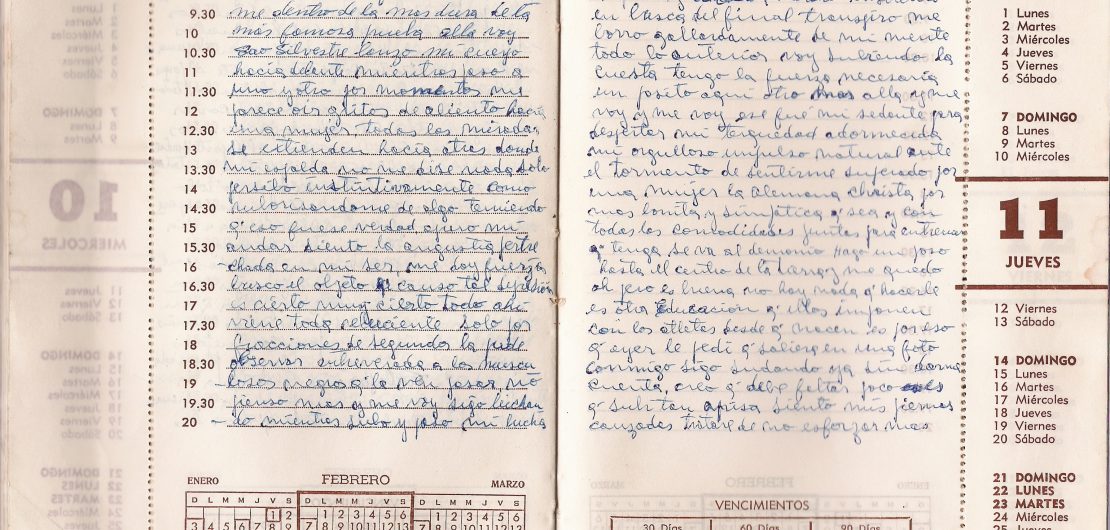 9.30 me dentro de la mas dura de la
10 mas famosa prueba alla voy
10.30 Sao Silvestre lanzo mi cuerpo
11 hacia delante mientras paso a
11.30 uno y otro por momentos me
12 parece oir gritos de aliento hacia
12.30 una mujer todas las miradas
13 se estienden hacia atres donde
13.30 mi espalda no me dise nada solo
14 persibo instintivamente como
14.30 de algo temiendo
15 q' eso fuese verdad apuro mi
15.30 andar siento la angustia
16 en mi ser, me doy fuerzas
16.30 busco el objeto q' causo tal
17 es cierto muy cierto todo ahi
17.30 viene toda solo por
18 fracciones de segundo la pude
18.30 observar a los
19 negros q' la ven pasar, no
19.30 pienso mas y me voy sigo luchan
20 do mientras subo y paso mi lucha
en busca del final transpiro me
borro gallardamente de mi mente
todo lo anterior voy subiendo la
cuesta tengo la fuerza necesaria
un pasito aqui otro mas alla y me
voy y me voy ese fue mi sedante para
despertar mi terquedad adormecida
mi orgulloso impulso natural ante
el tormento de sentirme superado por
una mujer la Alemana christa por
mas bonita y simpática q' sea y con
todas las comodidades juntas para entrenar
q' tenga se va al demonio Hago un paso
hasta el centro de la larga y me quedo
ah pero es buena no hay nada q' hacerle
es otra Educacion q' ellos imponen
con los atletas desde q' nacen es por eso
q' ayer le pedi q' saliera en una foto
conmigo sigo sudando ya sin darme
cuenta, creo q' debe faltar poco
q' subi tan aprisa siento mis piernas
canzadas tratare de no esforzar mas
10
MIERCOLES
1 Lunes
2 Martes
3 Miércoles
4 Jueves
5 Viernes
6 Sábado
7 DOMINGO
8 Lunes
9 Martes
10 Miércoles
11
JUEVES
12 Viernes
13 Sábado
14 DOMINGO
15 Lunes
16 Martes
17 Miércoles
18 Jueves
19 Viernes
20 Sábado
21 DOMINGO
22 LUNES
23 MARTES
24 Miércoles
ENERO FEBRERO MARZO
D L M M J V S D L M M J V S D L M M J V S
1 2 1 2 3 4 5 6 1 2 3 4 5 6
VENCIMIENTOS
30 Días 60 Días 90 Días